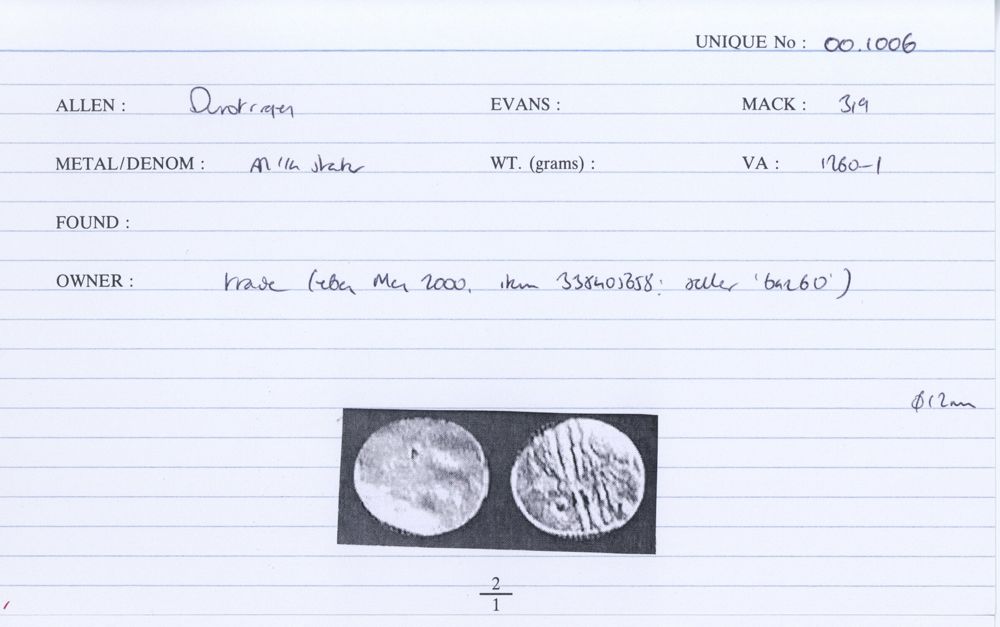 UNIQUE No : 00.1006
ALLEN : Durotrigan EVANS : MACK : 319
METAL/DENOM : AR 1/4 stater WT. (grams) : VA : 1260-1
FOUND :
OWNER : trade (eBay Mar 2000, item 338403658: seller 'baz60')
ø12mm
2
1